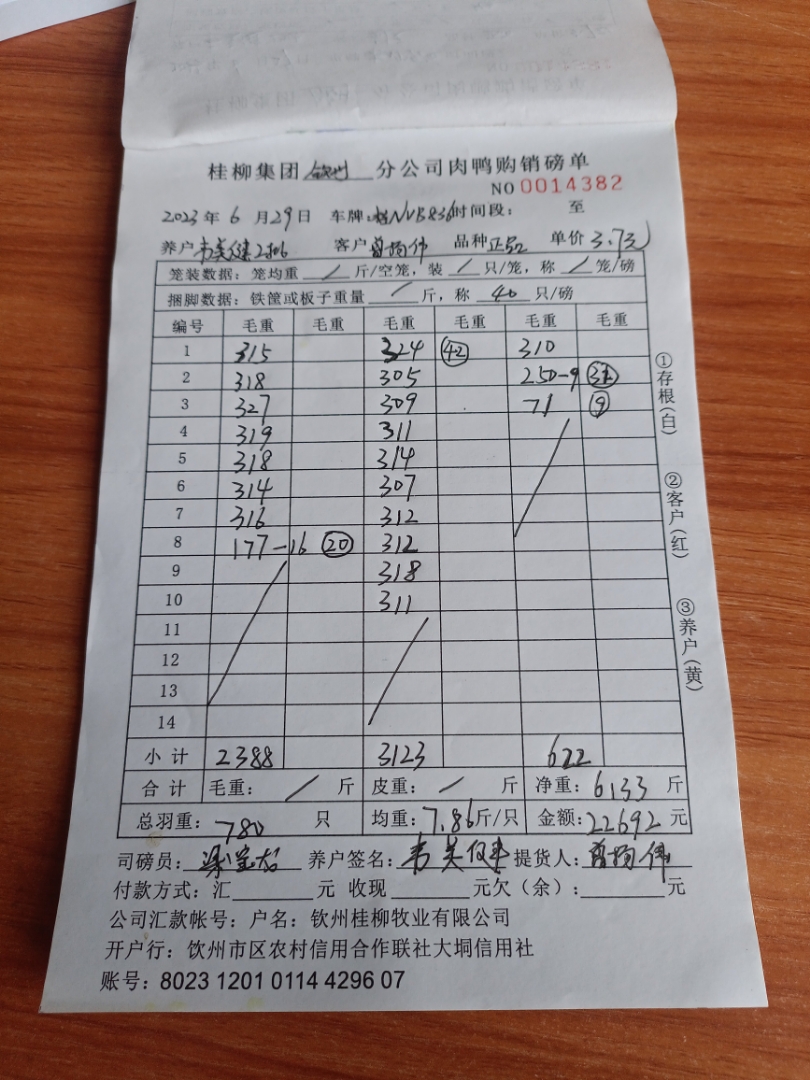 桂柳集团 钦州 分公司肉鸭购销磅单
NO 0014382
2023年 6 月29日 车牌: 时间段: 至
养户 客户 品种 正品 单价 3.7元
笼装数据: 笼均重 / 斤/空笼, 装 / 只/笼, 称 / 笼/磅
捆脚数据: 铁筐或板子重量 / 斤, 称 40 只/磅
编号 毛重 毛重 毛重 毛重 毛重 毛重
1 315 324 42 310
2 318 305 250-9
3 327 309 71 9
4 319 311
5 318 314
6 314 307
7 316 312
8 177-16 20 312
9 318
10 311
11
12
13
14
小计 2388 3123 622
合计 毛重: / 斤 皮重: / 斤 净重: 6133 斤
总羽重: 780 只 均重: 7.86斤/只 金额: 22692 元
司磅员: 养户签名: 提货人:
付款方式: 汇 元 收现 元欠(余): 元
公司汇款帐号: 户名: 钦州桂柳牧业有限公司
开户行: 饮州市区农村信用合作联社大垌信用社
账号: 8023 1201 0114 4296 07
①存根(白)
②客户(红)
③养户(黄)